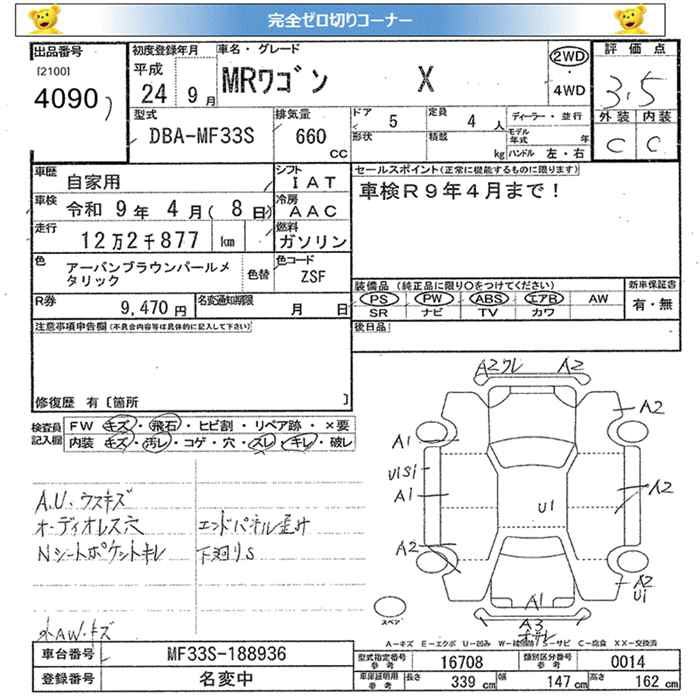 完全ゼロ切りコーナー
出品番号 初度登録年月 車名・グレード 評価点
[2100] 平成 MRワゴン X 2WD 3.5
4090 24 9月 ・ 4WD
外装 内装
型式 排気量 ドア 5 定員 4人 ディーラー・並行
DBA-MF33S 660 CC 形状 積載 kg モデル年式 年 C C
ハンドル 左・右
車歴 自家用 シフト IAT セールスポイント(正常に機能するものに限ります)
車検 令和 9年 4月( 8日) 冷房 AAC 車検R9年4月まで!
走行 12万2千877 km 燃料 ガソリン
色 アーバンブラウンパールメタリック 色替 色コード ZSF
装備品 (純正品に限り○をつけてください) 新車保証書
R券 9,470円 名変通知期限 月 日 PS PW ABS エアB AW 有・無
SR ナビ TV カワ
注意事項申告欄(不具合内容等は具体的に記入して下さい) 後日品
修復歴 有 [箇所 ]
検査員記入欄 FW キズ・飛石・ヒビ割・リペア跡・×要
内装 キズ・汚レ・コゲ・穴・スレ・キレ・破レ
A2ワレ A2
A2
A1
U1S1
A1 U1 A2
A2
A2
U1
A1
A3
スペア
A.U.ウスキズ
オーディオレス穴 エンドパネル歪み
Nシートポケットキレ 下廻りS
AW.キズ
A-キズ E-エクボ U-凹み W-補修跡 S-サビ C-腐食 XX-交換済
車台番号 MF33S-188936 型式指定番号 参考 16708 類別区分番号 参考 0014
登録番号 名変中 車庫証明用 参考 長さ 339 cm 幅 147 cm 高さ 162 cm